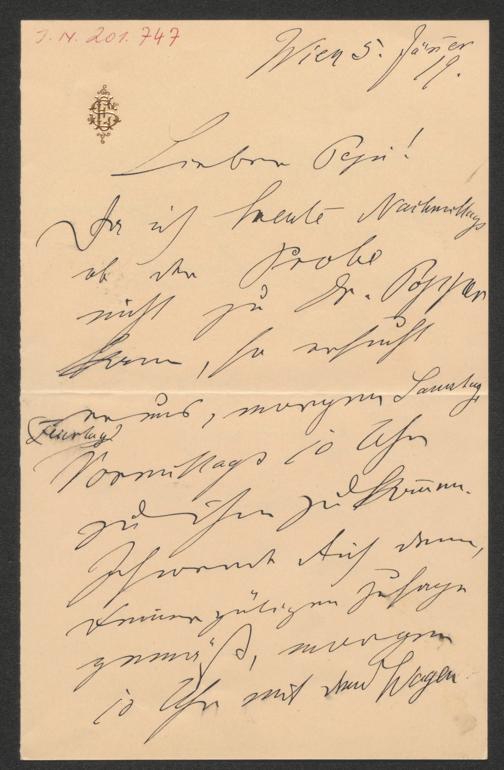 J. N. 201.747
Wien 5. Jänner
19.
ES
Lieber Pepi!
Da ich heute Nachmittags
ob der Probe
nicht zu Dr. Popper
kann, so ersucht
er uns, morgen Samstag,
(Feiertag)
Vormittags 10 Uhr
zu ihm zu kommen.
Ich werde dich denn,
deiner gütigen Zusage
gemäß, morgen
10 Uhr mit dem Wagen